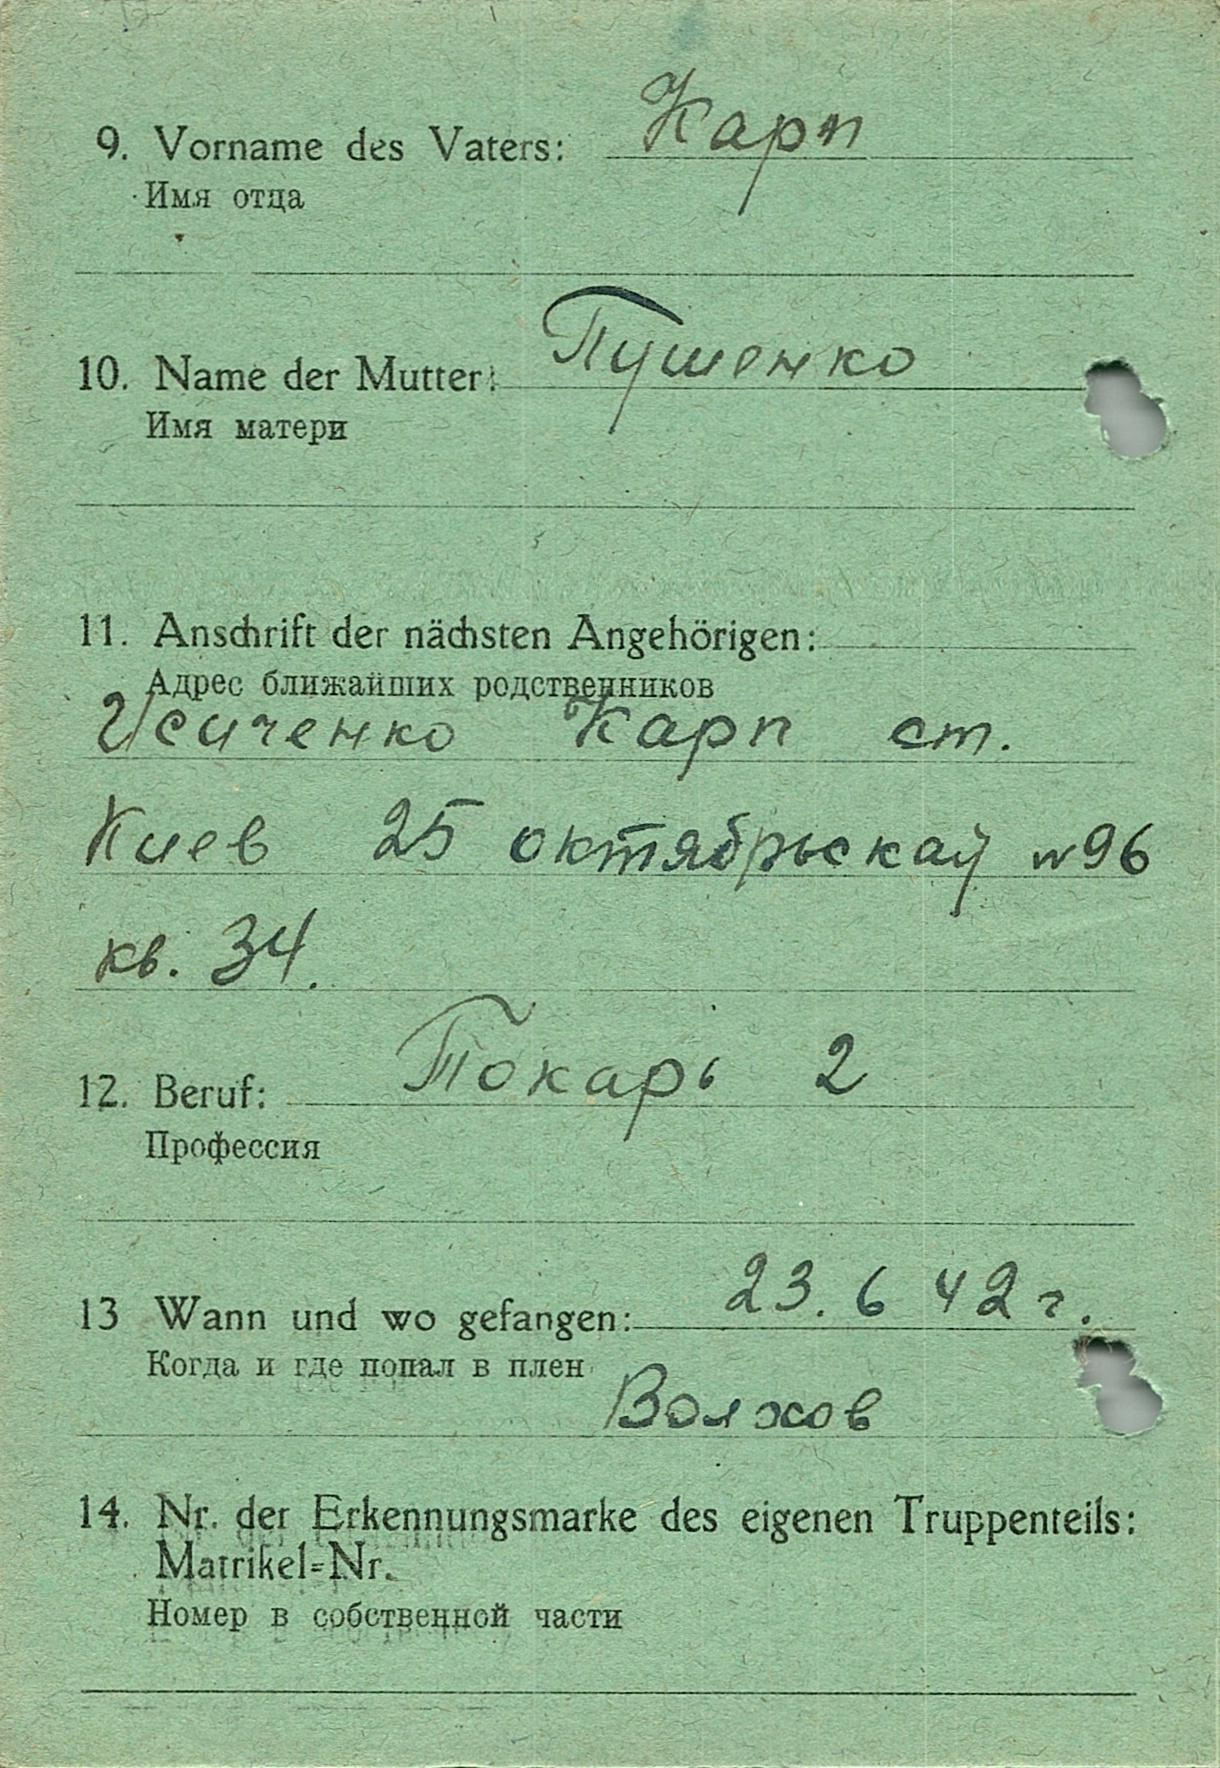 9. Vorname des Vaters: Карп
Имя отца
10. Name der Mutter: Пушенко
Имя матери
11. Anschrift der nächsten Angehörigen:
Адрес ближайших родственников
Исиченко Карп ст.
Киев 25 октябрьскай №96
кв. 34.
12. Beruf: Токарь 2
Профессия
13 Wann und wo gefangen: 23. 6 42 г.
Когда и где попал в плен
Волхов
14. Nr. der Erkennungsmarke des eigenen Truppenteils:
Matrikel=Nr.
Номер в собственной части